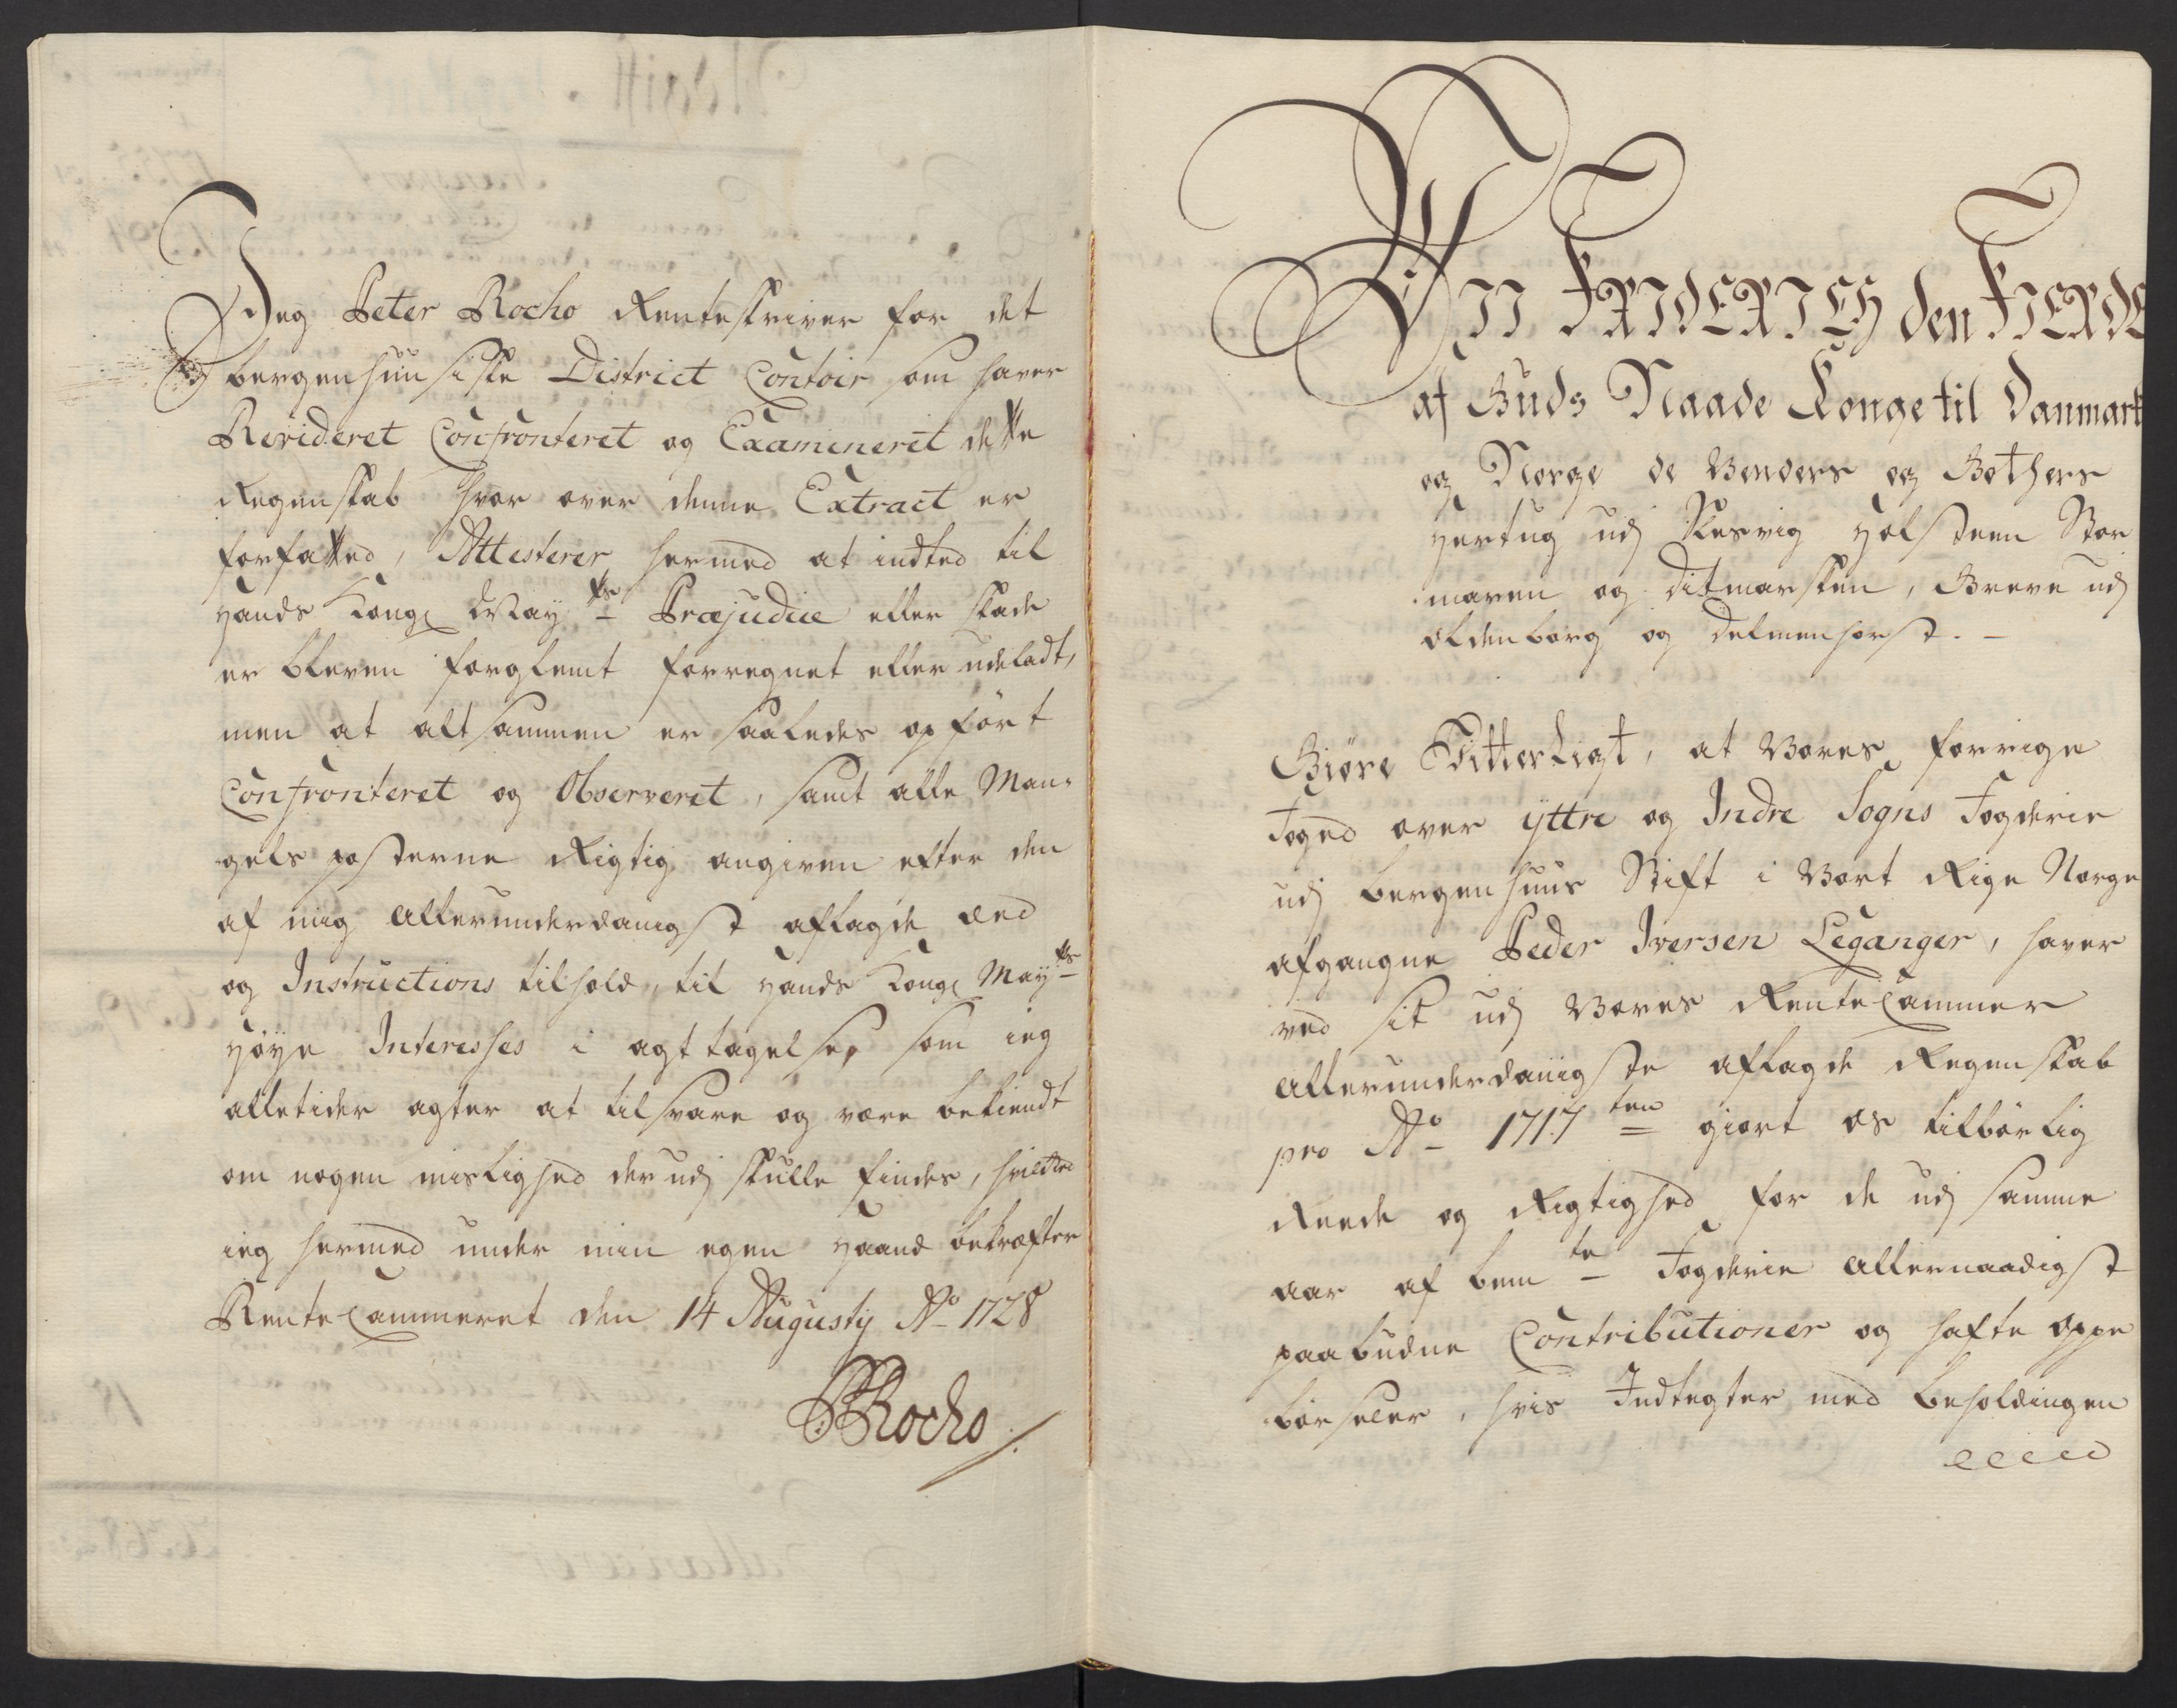 Jeg Peter Rocho Renteskriver for det
bergenhuusiske District Contoir som haver
Revideret Confronteret og Examineret dette
Regenskab hvor over denne Extract er
forfatted, Attesterer hermed at indted til
Hands Kongl May^ts Præjudice eller skade
er bleven forglemt forregnet eller udeladt,
men at altsammen er saaledes opført
Confronteret og Observeret, samt alle Man-
gels posterne Rigtig angiven efter den
af mig allerunderdanigst aflagde eed
og Instructions tilhold, til Hands Kongl May^ts
Høye Interesses i agttagelse, som ieg
alletider agter at tilsvare og være bekiendt
om nogen mislighed der udj skulle findes, hvilcket
ieg hermed under min egen Haand bekræfter
RenteCammeret den 14 Augustij A^o 1728
PRocho
WII FRIDERICH den FIERDE
af Guds Naade Konge til Danmark
og Norge de Venders og Gothers
Hertug udj Slesvig Holsteen Stor
maren og Ditmarsken, Greve udj
Oldenborg og Delmenhorst.
Giøre Vitterligt, at Vores forrige
Foged over yttre og Indre Sogns Fogderie
udj bergenhuus Stift i Vort Rige Norge
afgangne Peder Iversen Leganger, haver
ved sit udj Vores RenteCammer
allerunderdanigste aflagde Regenskab
pro A^o 1717^ten giort os tilbørlig
Reede og Rigtighed for de udj samme
aar af bem^te Fogderie allernaadigst
paabudne Contributioner og hafte oppe
børseler, hvis Indtegter med beholdingen